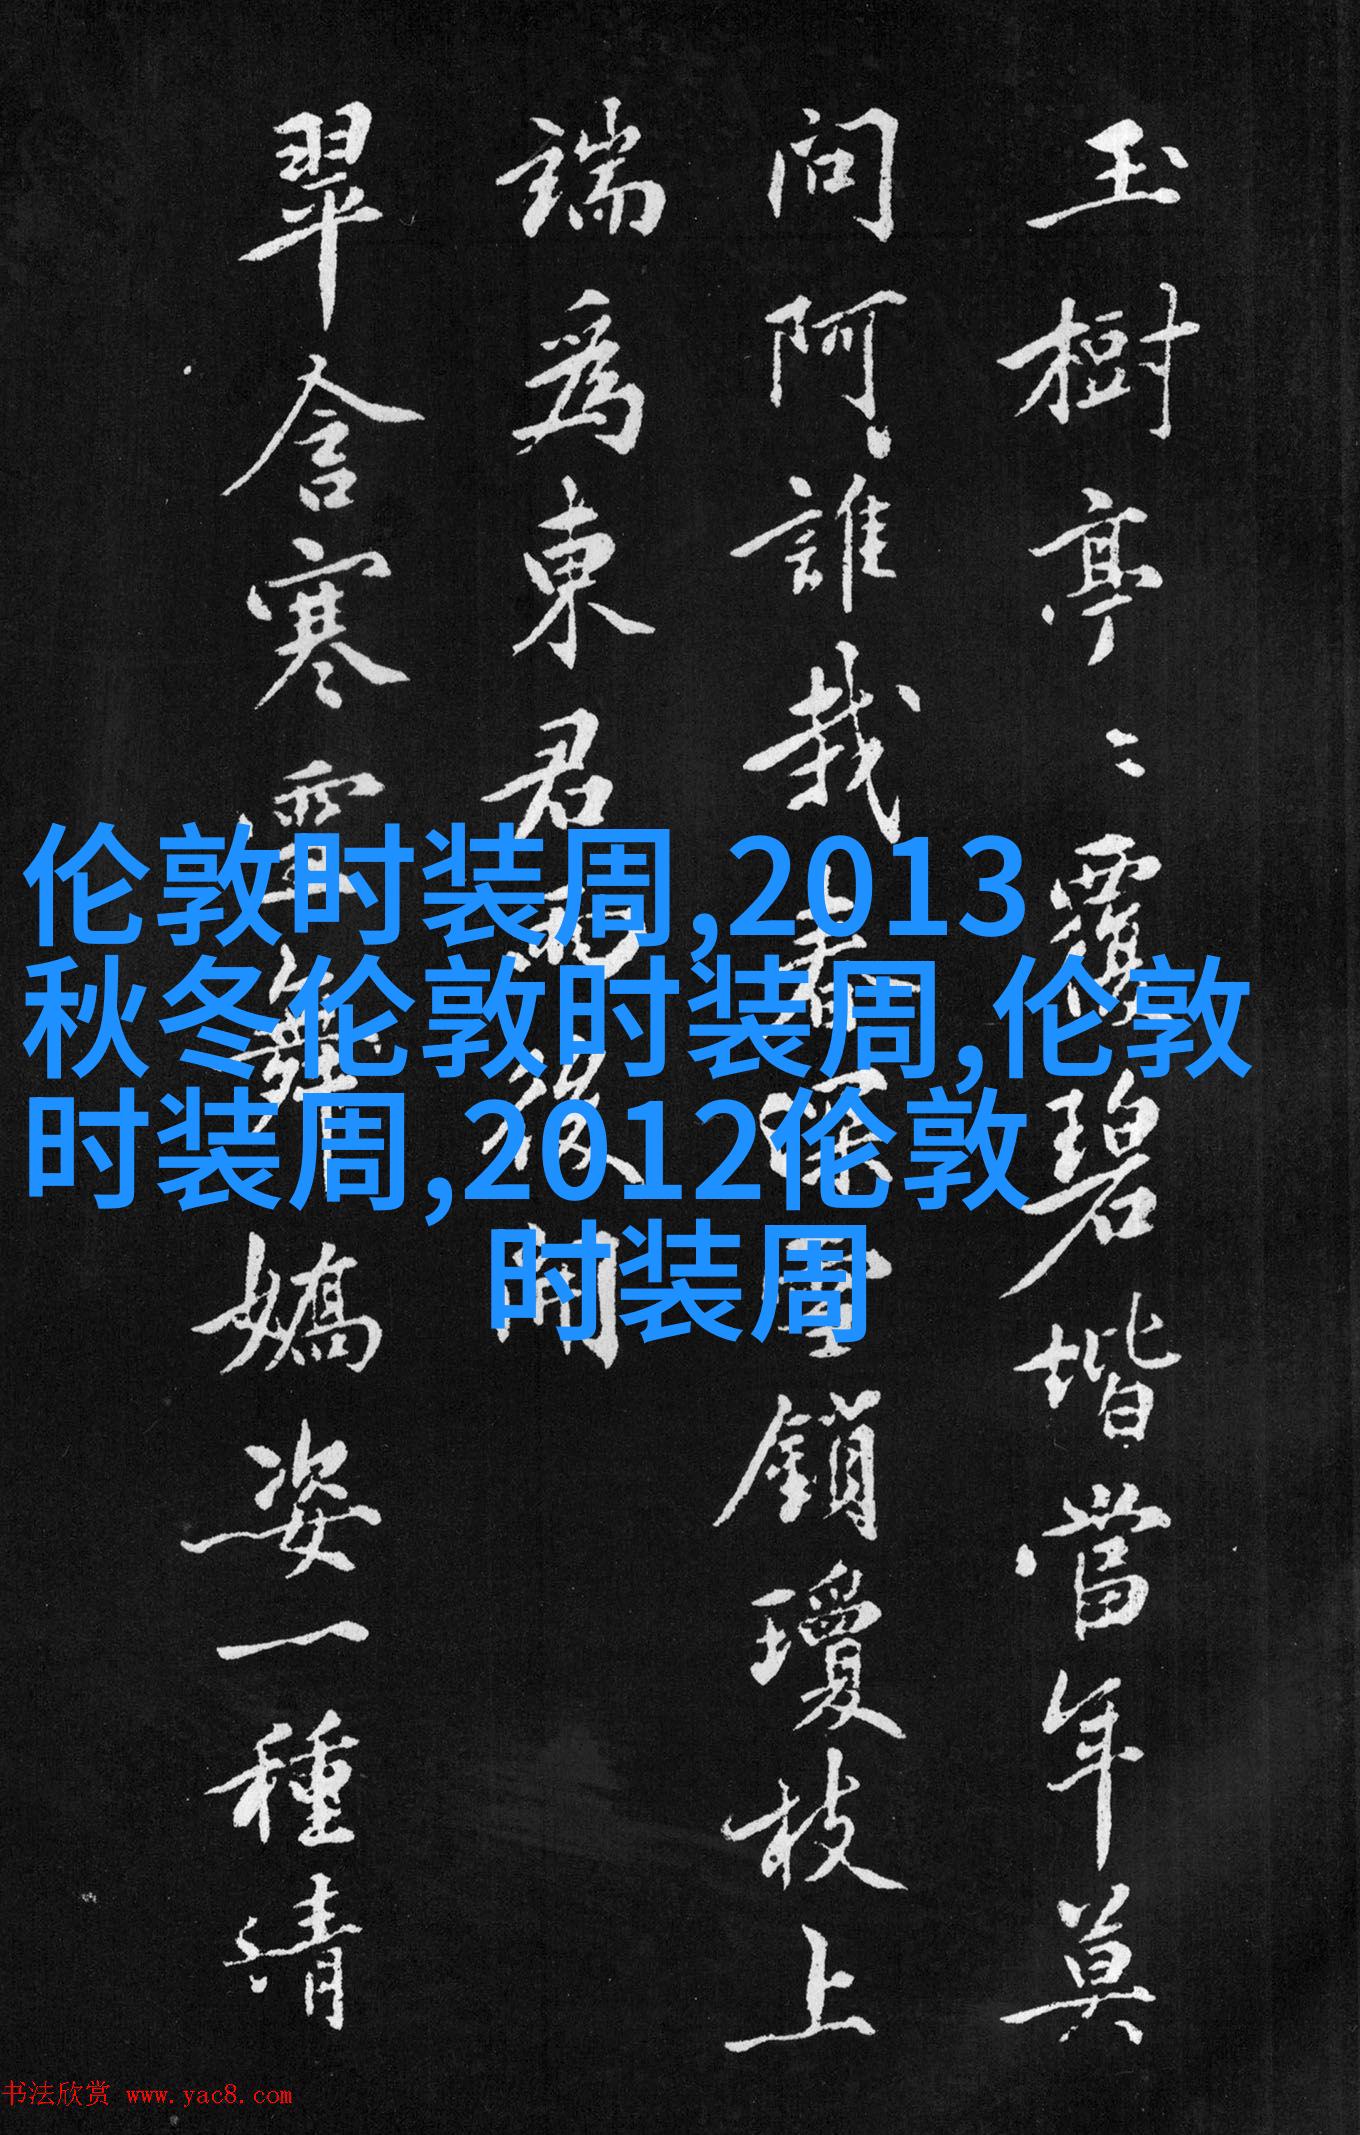 玉樹亭〻覆碧堦當年莫
問阿誰栽春深雪鎖瓊枝上
端爲東君雨後開
翠含寒舞嬌姿一種清
伦敦时装周,2013
秋冬伦敦时装周,伦敦
时装周,2012伦敦
时装周
书法欣赏 www.yac8.com